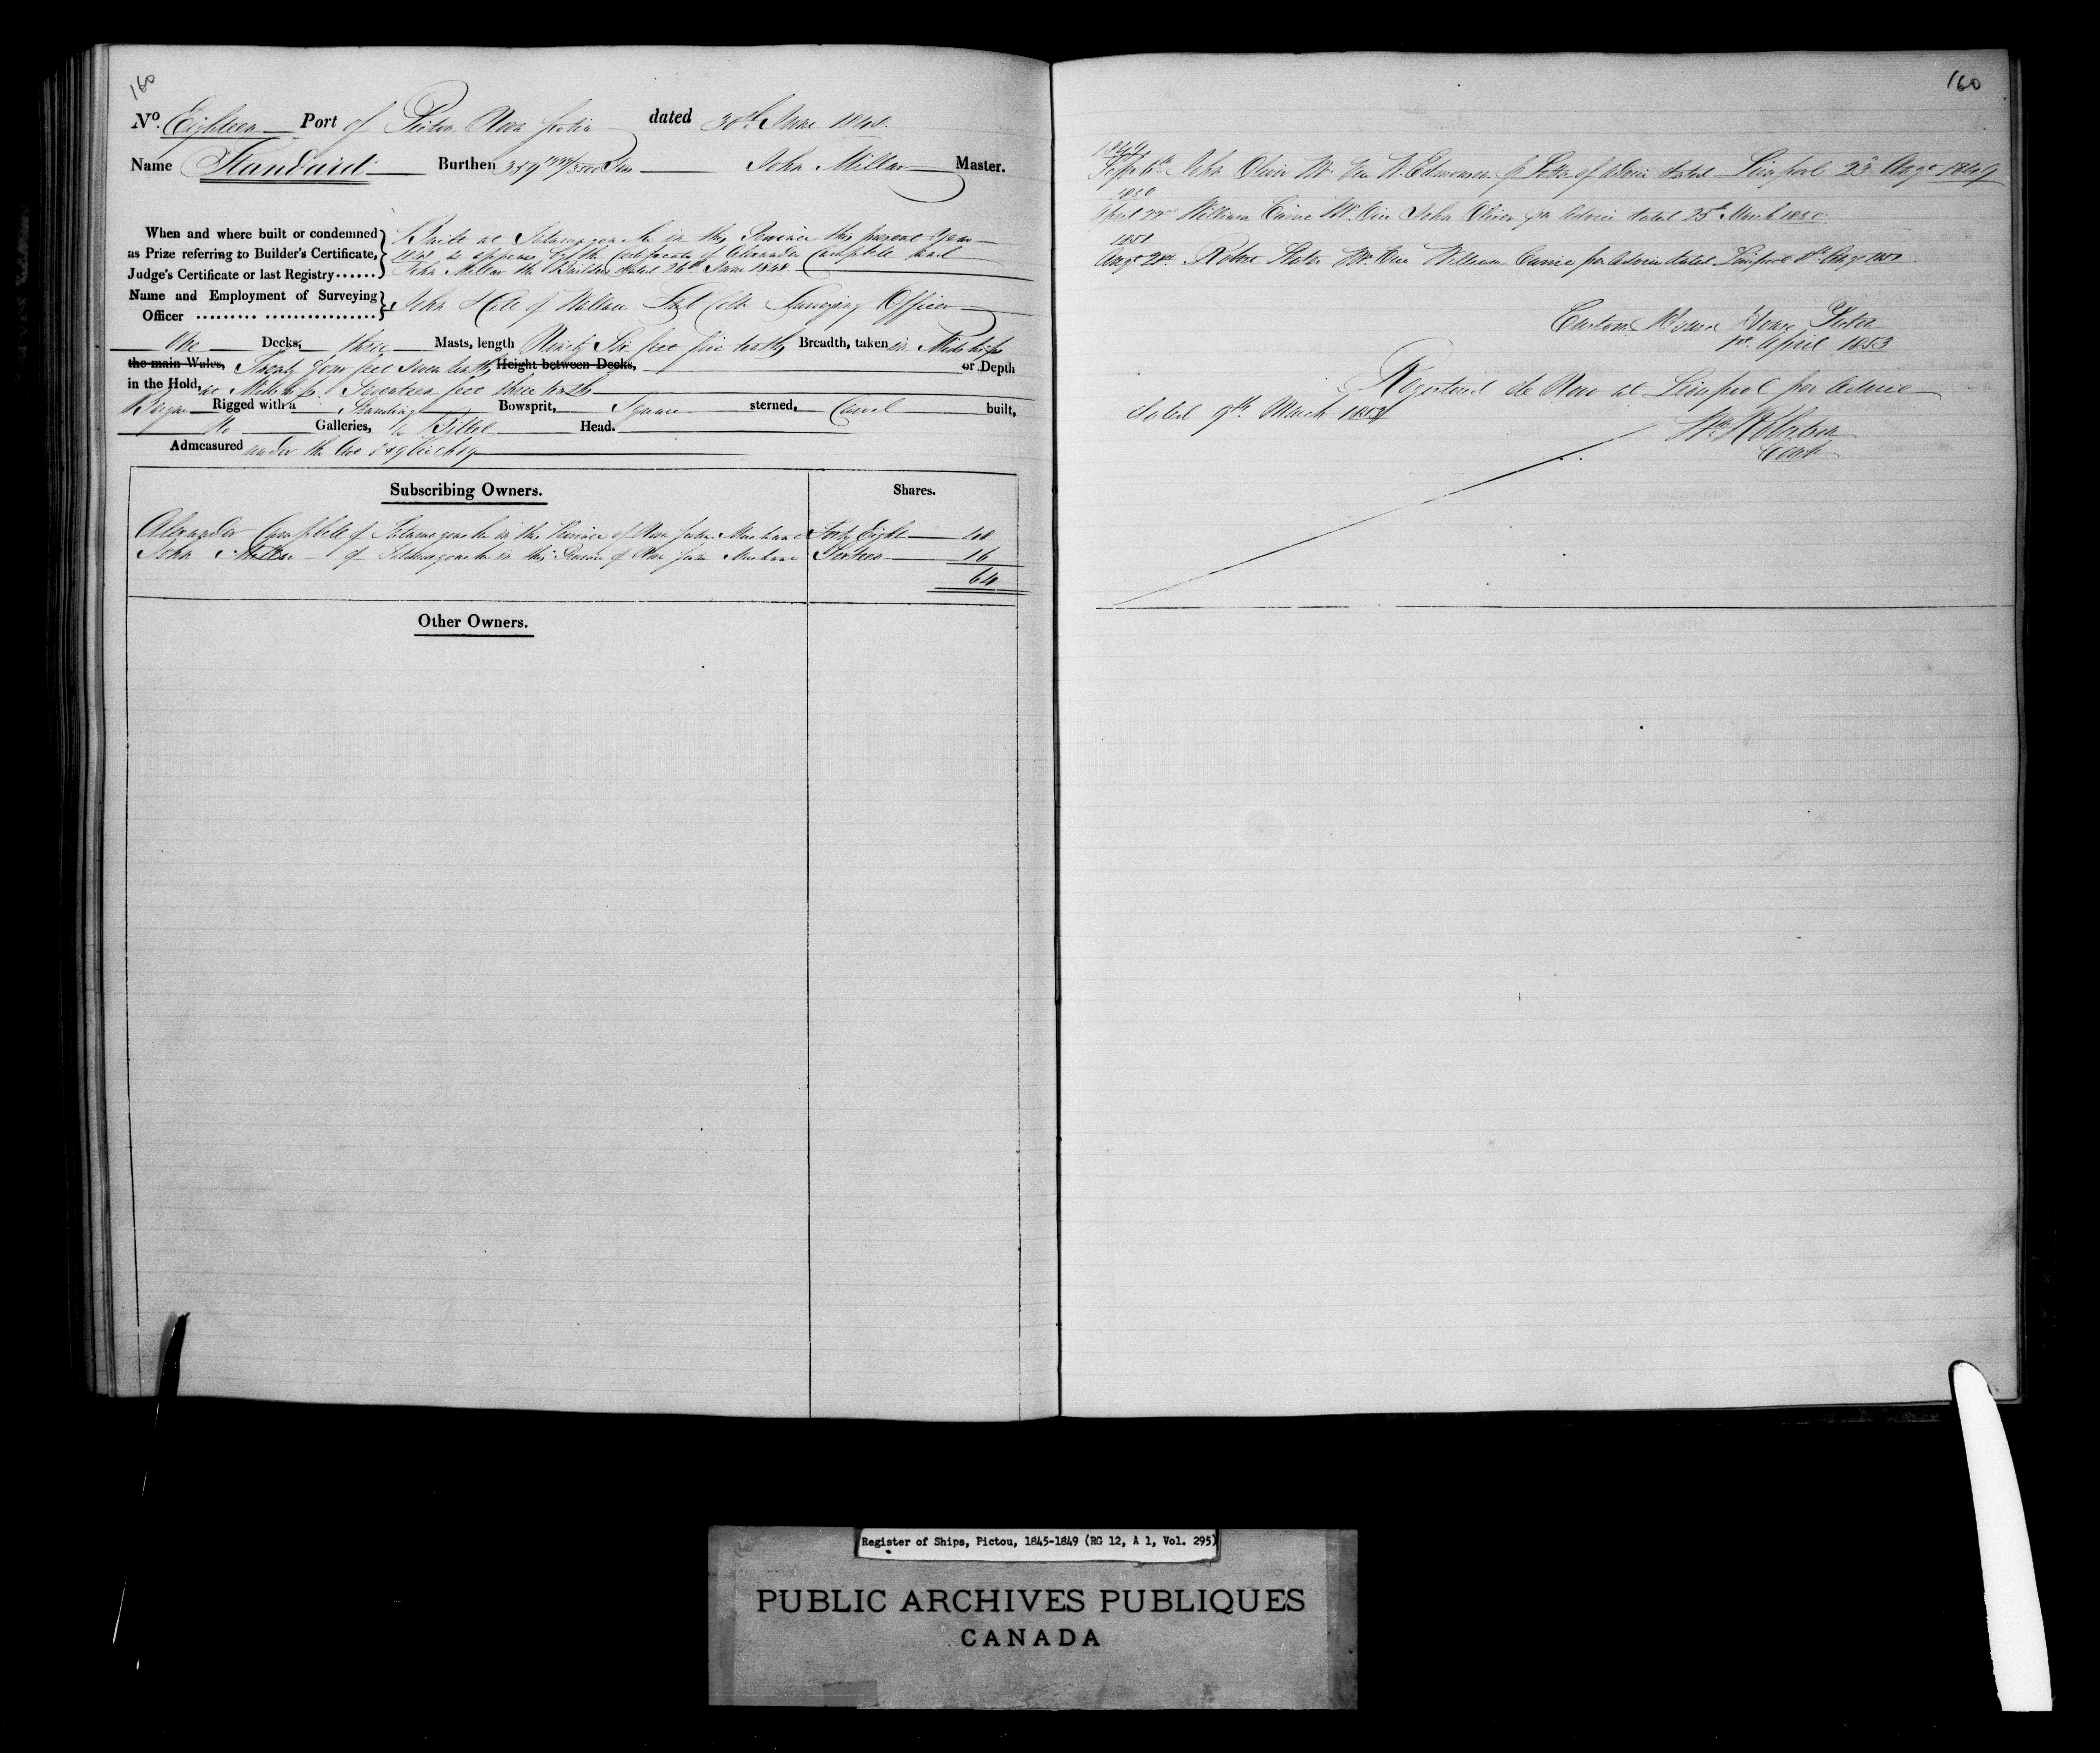 160
No. Eighteen Port of Pictou Nova Scotia dated 30th June 1848.
Name Standard Burthen 359 Tons John Millar Master.
When and where built or condemned as Prize referring to Builder's Certificate, Judge's Certificate or last Registry......
Built at Tatamagouche in this Province this present Year
1848 as appears by the Certificate of Alexander Campbell and
John Millar the Builders dated 26th June 1848.
Name and Employment of Surveying Officer
John of Wallace Surveying Officer
One Decks, three Masts, length Ninety Six feet five tenths Breadth, taken in Midships
the main Wales, Twenty four feet seven tenths Height between Decks, or Depth
in the Hold, at Midships Seventeen feet three tenths
Rigged with a Standing Bowsprit, Square sterned, Carvel built,
No Galleries, Billet Head.
Admeasured under the Act
Subscribing Owners. Shares.
Alexander Campbell of Tatamagouche in this Province of Nova Scotia Merchant Forty Eight 48
John Millar of Tatamagouche in this Province of Nova Scotia Merchant Sixteen 16
64
Other Owners.
160
1849
Sept 6th John Oliver Mr. Vice N. Edmonson p Letter of Advice dated Liverpool 23d Augt 1849
1850
April 22nd William Mr. Vice John Oliver per Advice dated 25th March 1850.
Robert Mr. Vice William per Advice dated Liverpool
Custom House Pictou
1st April 1853
Registered de Novo at Liverpool per Advice
dated March
Register of Ships, Pictou, 1845-1849 (RG 12, A 1, Vol. 295)
PUBLIC ARCHIVES PUBLIQUES
CANADA